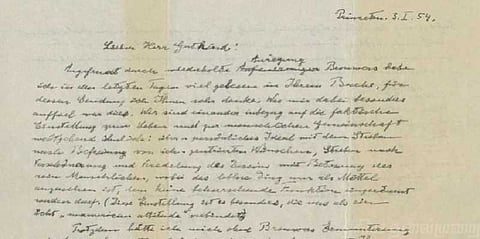 Princeton. 3. I. 54.
Lieber Herr Gutkind!
Anregung
Angefeuert durch wiederholte Brouwers habe
ich in den letzten Tagen viel gelesen in Ihrem Buche, für
dessen Sendung ich Ihnen sehr danke. Was mir dabei besonders
auffiel war dies. Wir sind einander inbezug auf die faktische
Einstellung zum Leben und zur menschlichen Gemeinschaft
weitgehend ähnlich: über-persönliches Ideal mit dem Streben
nach Befreiung von ich-zentrierten Wünschen, Streben nach
Verschönerung und Veredelung des Daseins mit Betonung des
rein Menschlichen, wobei das leblose Ding nur als Mittel
anzusehen ist, dem keine beherrschende Funktion eingeräumt
werden darf. (Diese Einstellung ist es besonders, die uns als ein
echt "unamerican attitude" verbindet.)
Trotzdem hätte ich mich ohne Brouwers Ermunterung